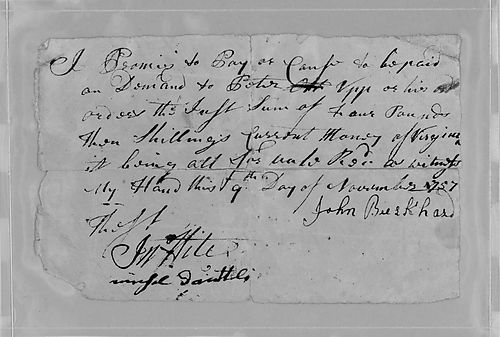 I Promis to Pay or Cause to be paid
on Demand to Peter Upp or his
orders the Just Sum of four Pounds
then Shillings Current Money of Virginia
it being all for vale Recd. a witness
My Hand this 9th Day of November 1757
John Burkhard
Thest